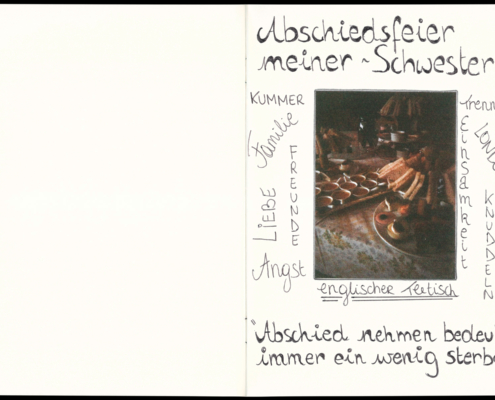 Abschiedsfeier
meiner ~ Schwester
KUMMER
Familie
FREUNDE
LIEBE
Angst
Trenn
Einsamkeit
LOND
KNUDDELN
englischer Teetisch
"Abschied nehmen bedeu
immer ein wenig sterbe